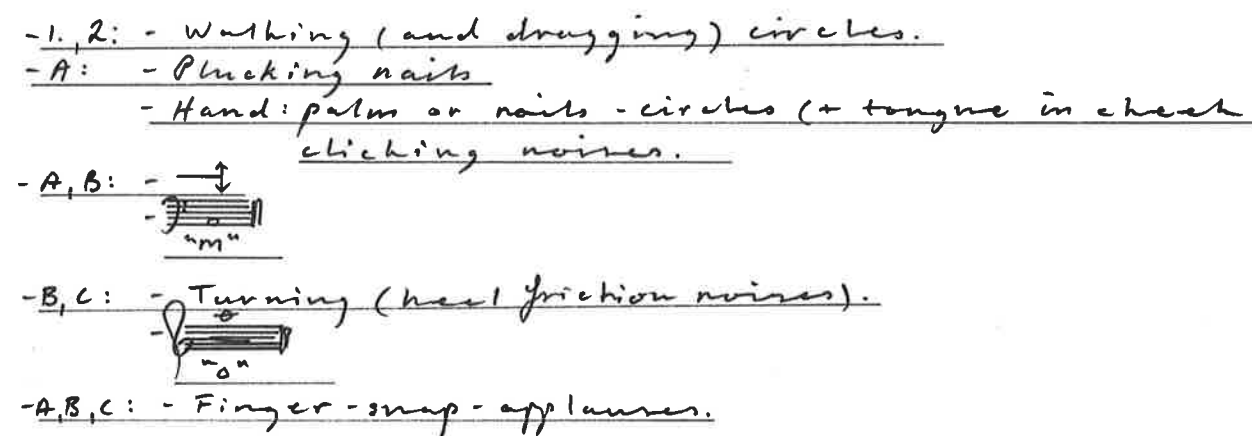 -1., 2: - Walking (and dragging) circles.
-A: - Plucking nails
- Hand: palm or nails - circles (+ tongue in cheek
clicking noises.
-A, B: -
-
"m"
-B, C: - Turning (heel friction noises).
-
"o"
-A,B,C: - Finger-snap-applauses.